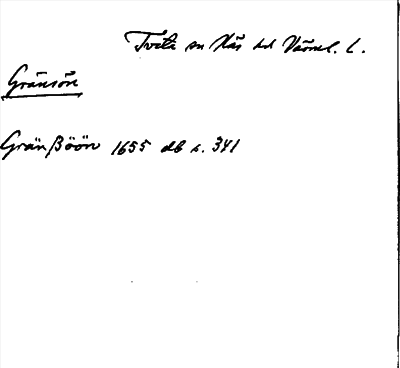 Tveta sn Näs hd Värml. l.
Gränsön
Gränßöön 1655 db s. 341